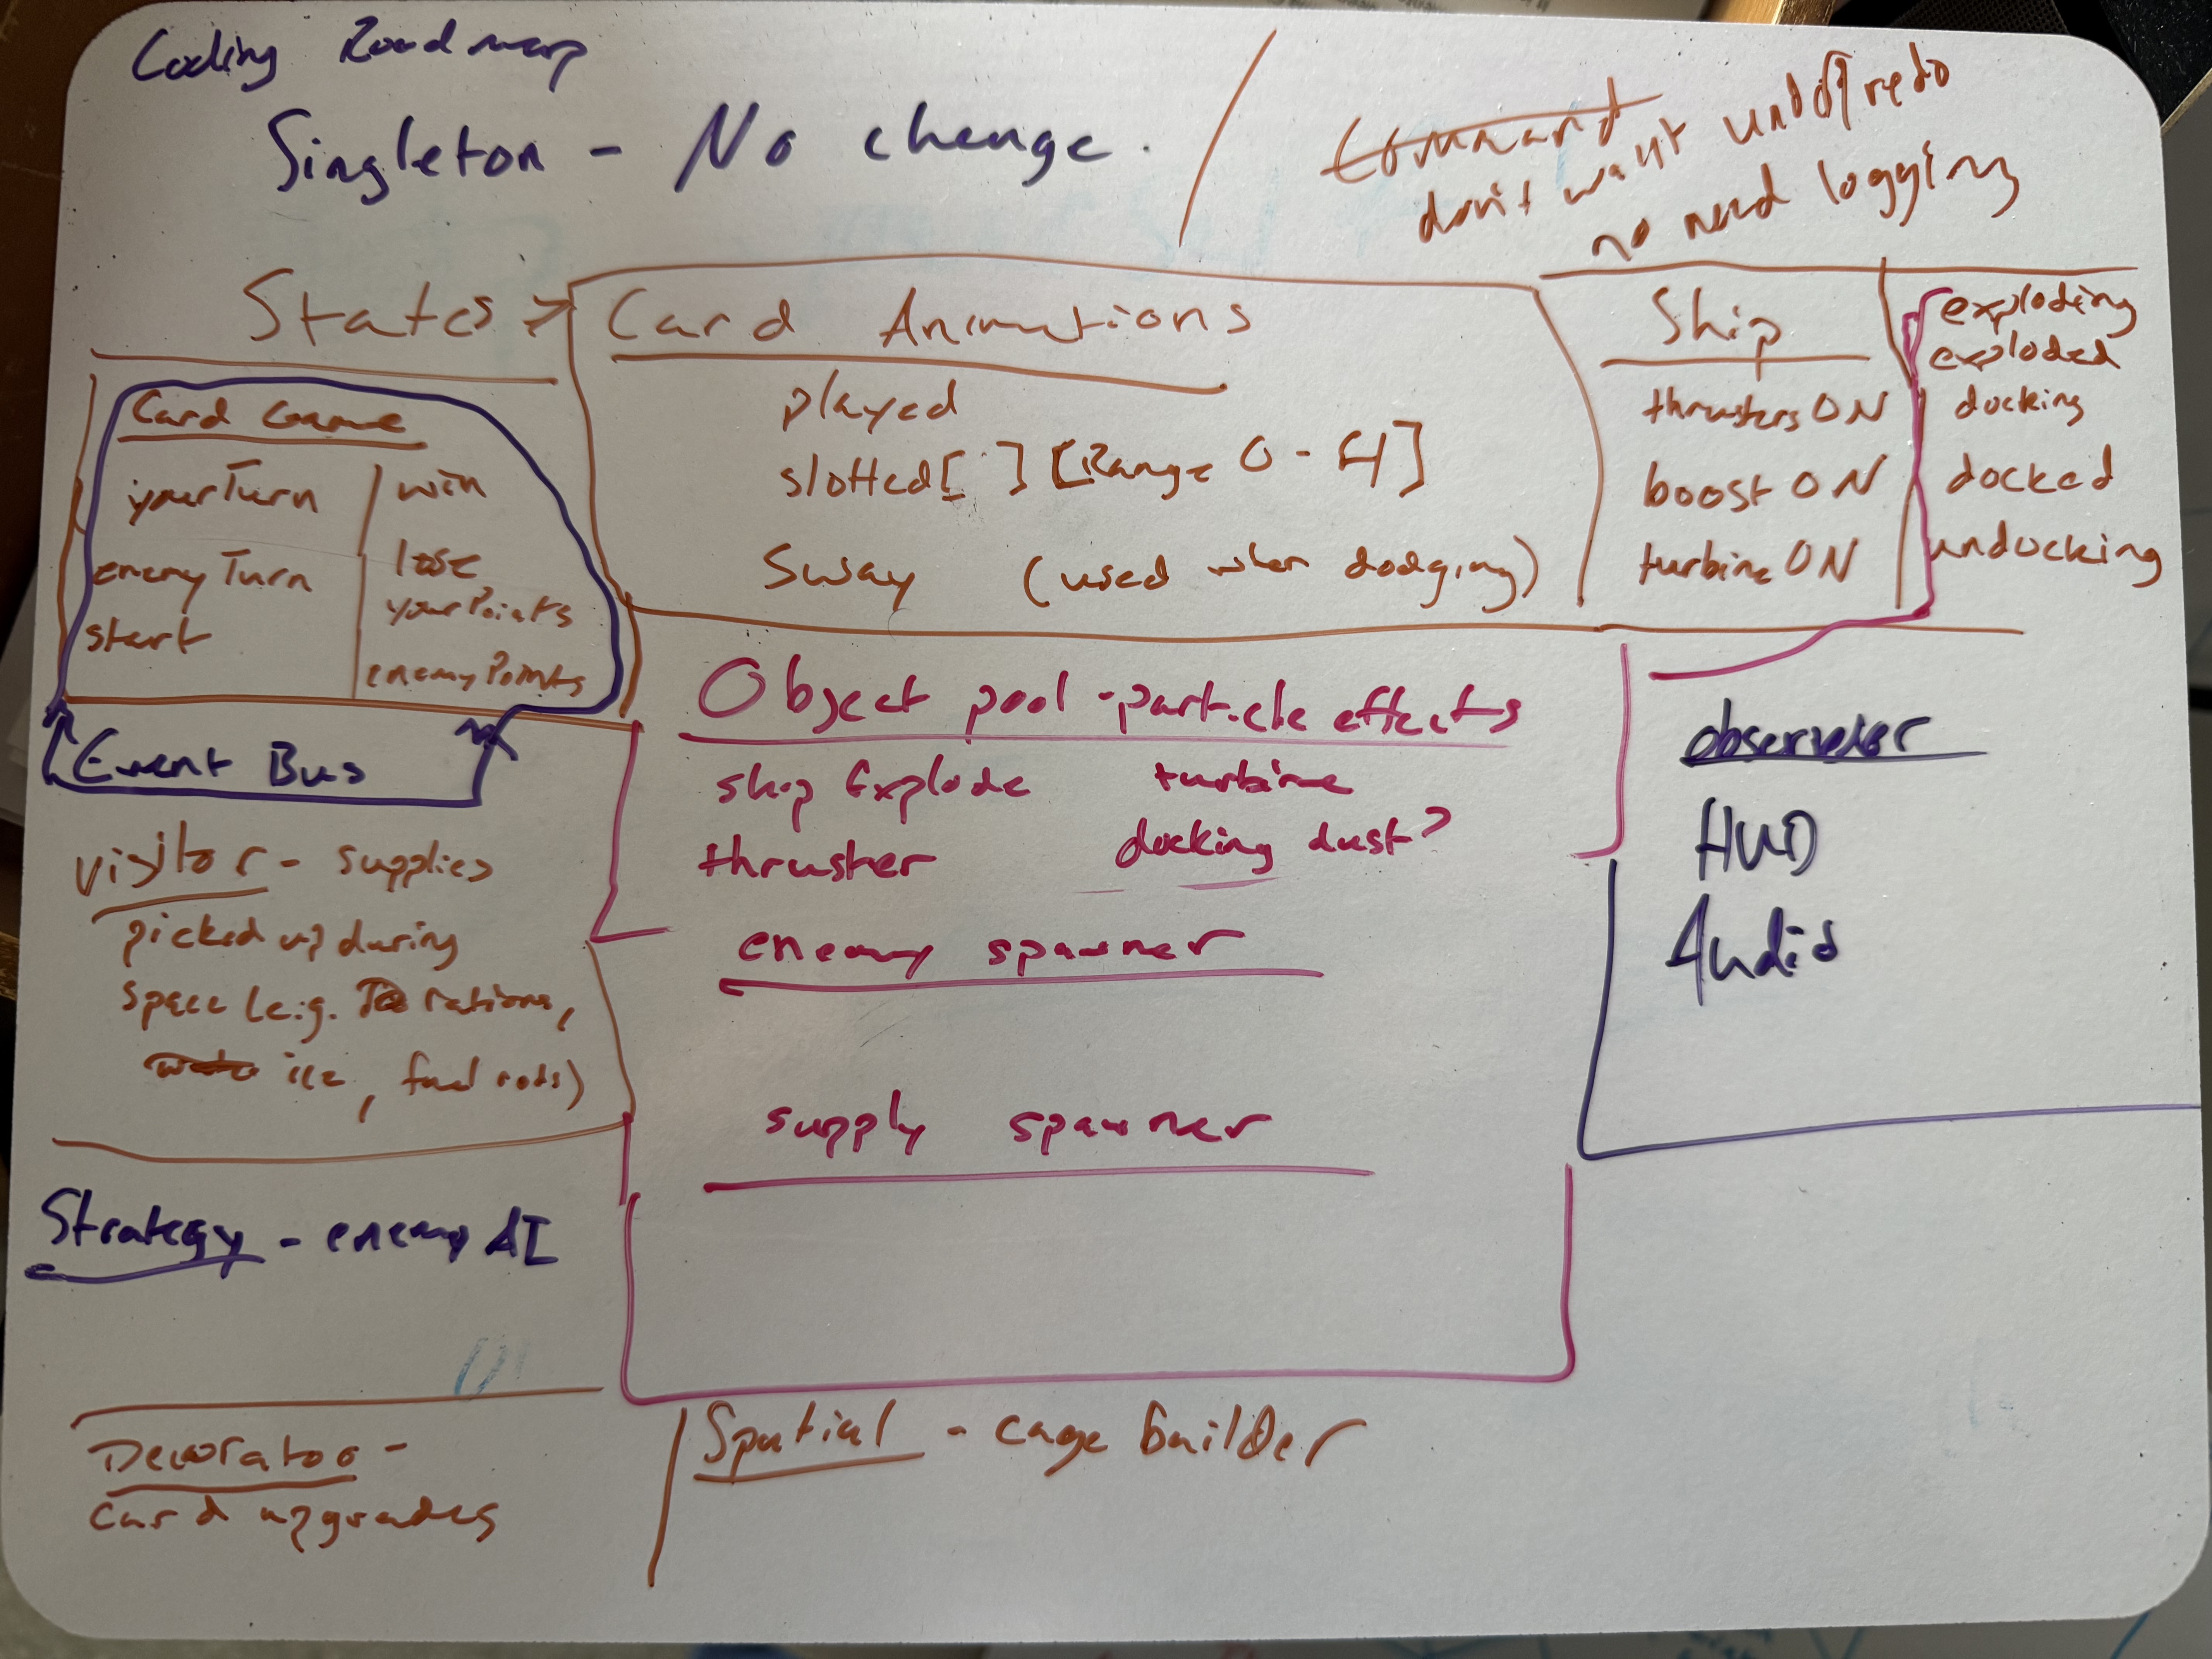 Coding Roadmap
Singleton - No change.
Command
don't want undo/redo
no need logging
States >
Card Animations
played
slotted[ ] [Range 0-4]
Sway (used when dodging)
Ship
thrusters ON
boost ON
turbine ON
exploding
exploded
docking
docked
undocking
Card Game
yourTurn
enemyTurn
start
win
lose
yourPoints
enemyPoints
Event Bus
Object pool - particle effects
ship Explode turbine
thruster docking dust?
enemy spawner
supply spawner
observer
HUD
Audio
Visitor - supplies
picked up during
space (e.g. rations,
ice, fuel rods)
Strategy - enemy AI
Decorator -
card upgrades
Spatial - cage builder